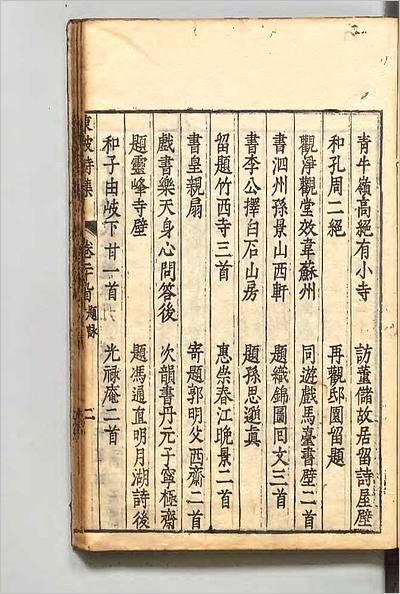 青牛嶺高絕有小寺　訪董儲故居留詩屋壁
和孔周二絕　再觀邸園留題
觀淨觀堂效韋蘇州　同遊戲馬臺書壁二首
書泗州孫景山西軒　題織錦圖回文三首
書李公擇白石山房　題孫思邈真
留題竹西寺三首　惠崇春江晚景二首
書皇親扇　寄題郭明父西齋二首
戲書樂天身心問答後　次韻書丹元子寧極齋
題靈峰寺壁　題馮通直明月湖詩後
和子由岐下廿一首　光祿庵二首
東坡詩集　卷二十九　題詠　二